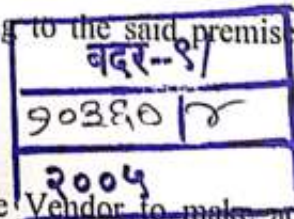 g to the said premis
बदर--९/
१०३६०
२००५
e Vendor to make